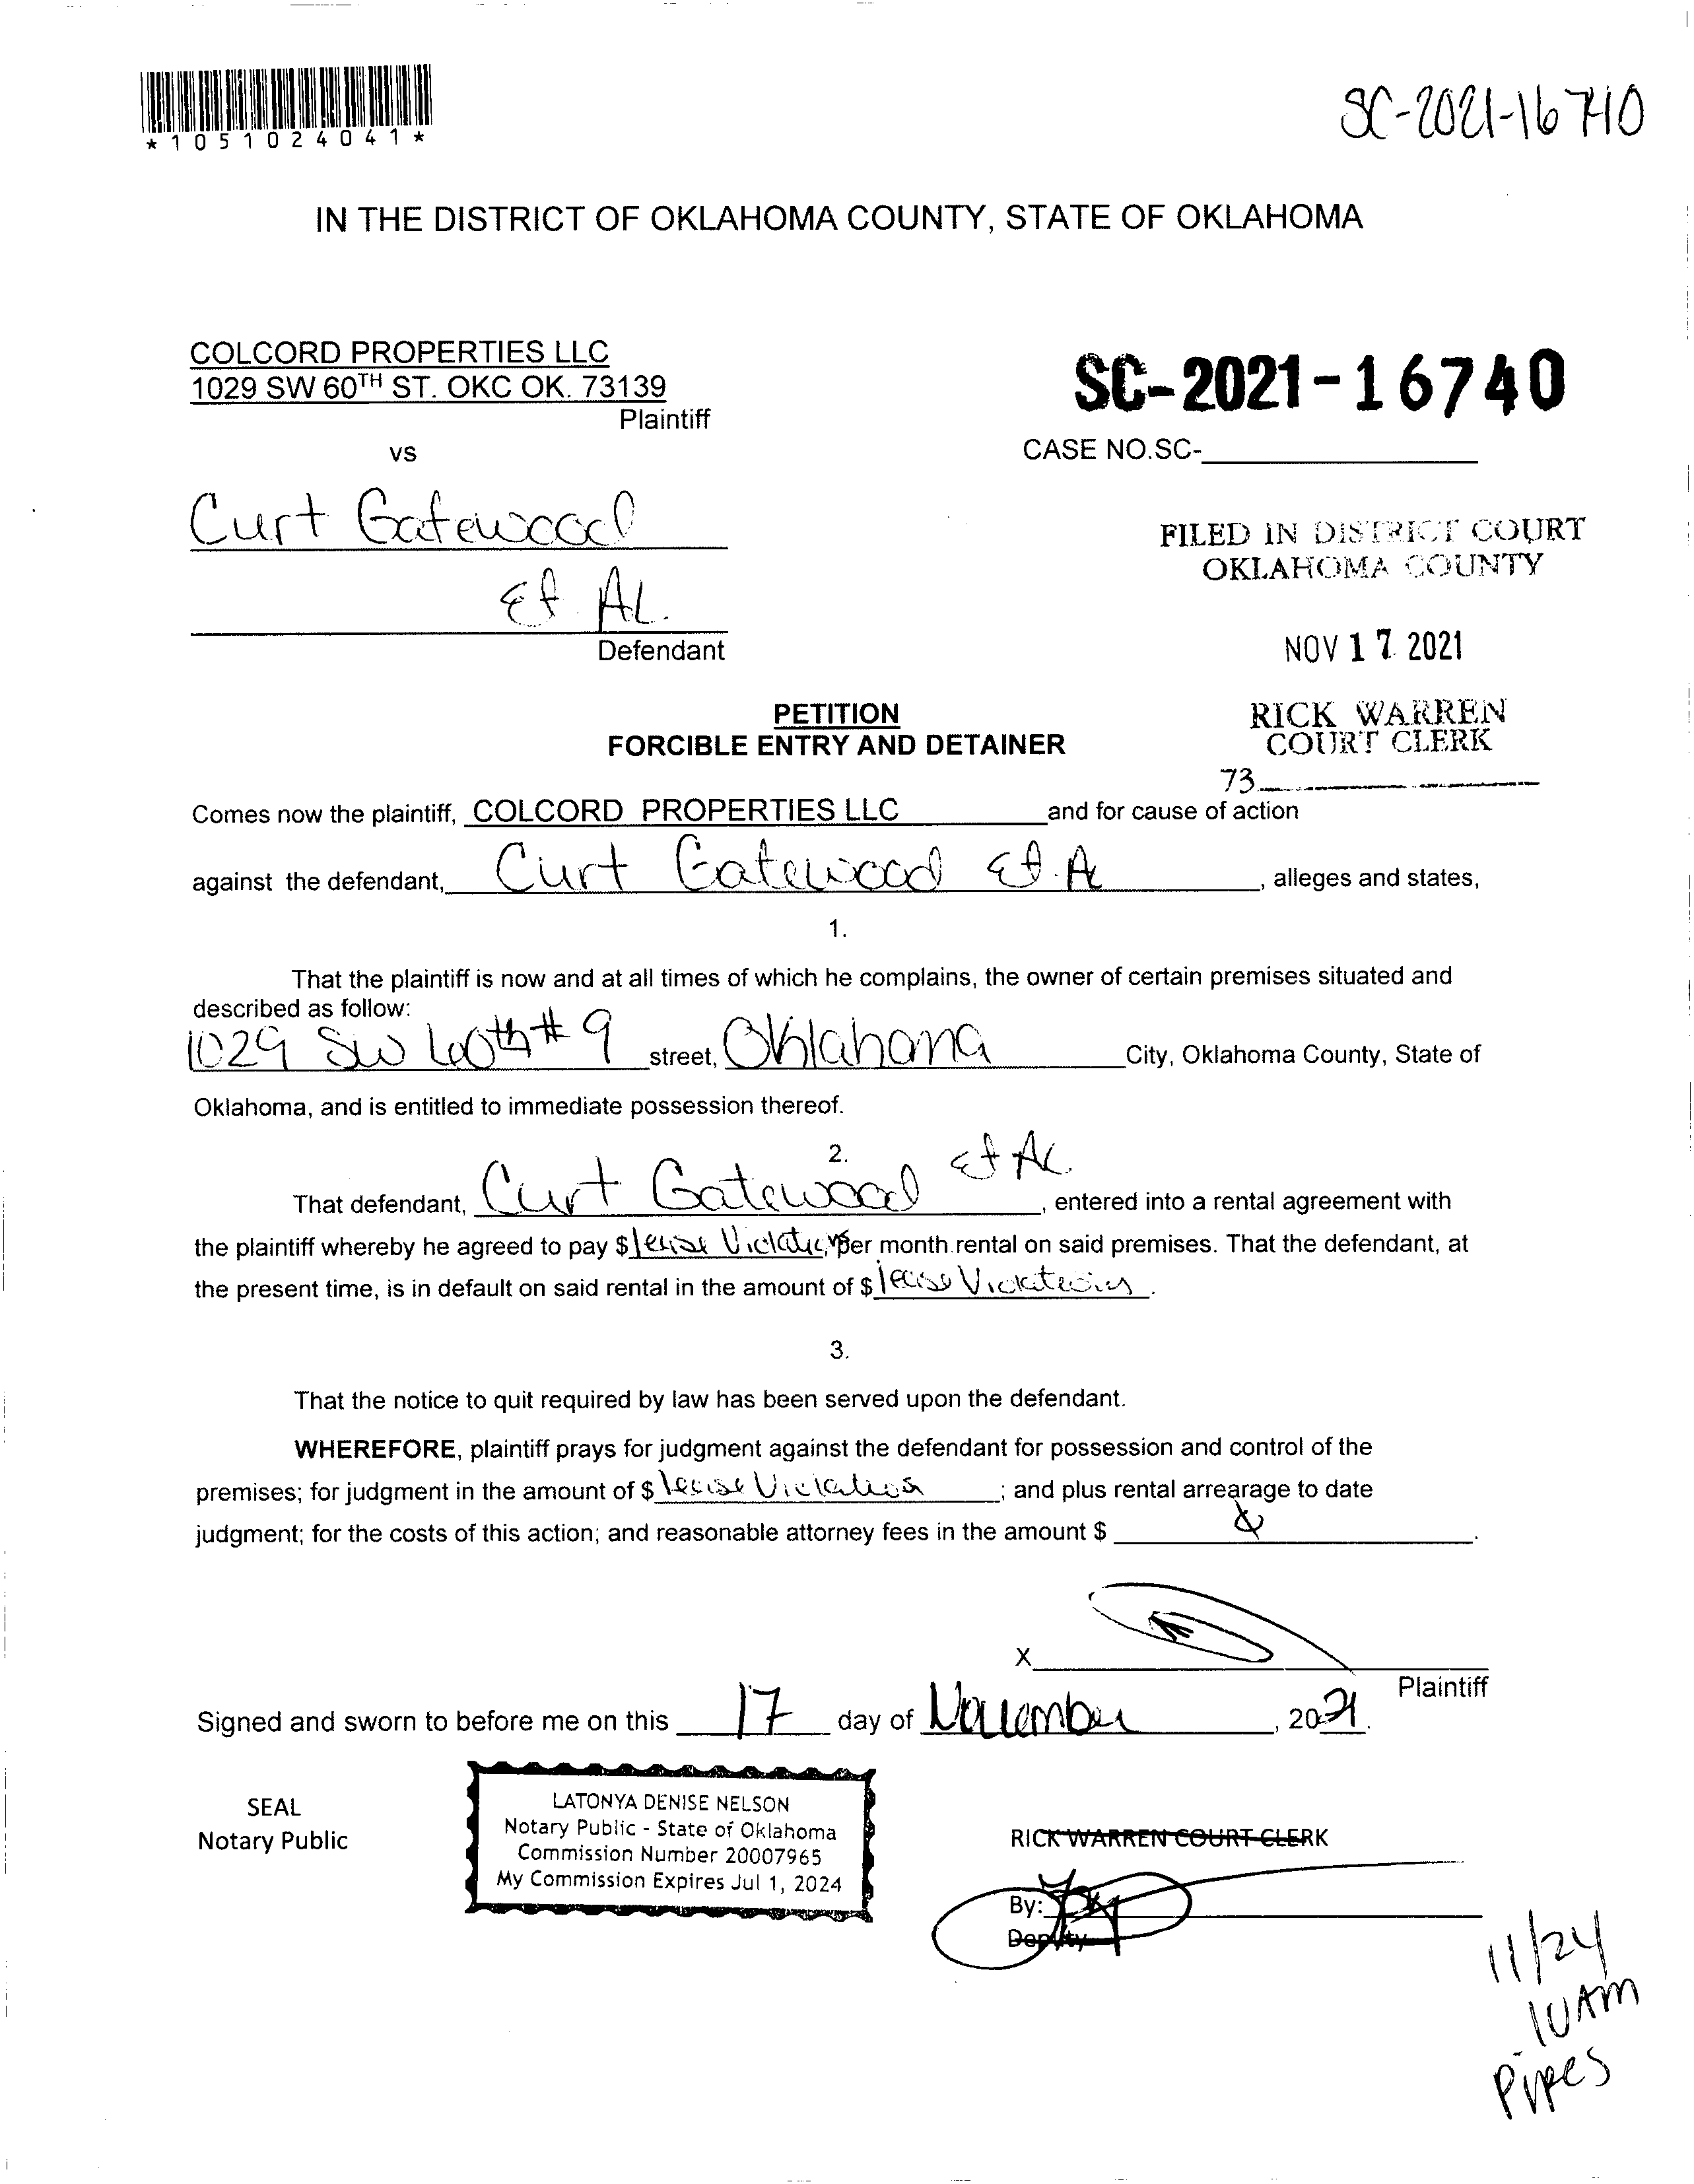 *1051024041*
SC-2021-16740
IN THE DISTRICT OF OKLAHOMA COUNTY, STATE OF OKLAHOMA
COLCORD PROPERTIES LLC
1029 SW 60TH ST. OKC OK. 73139
Plaintiff
SC-2021-16740
vs
CASE NO.SC-
Curt Gatewood
Et. AL.
Defendant
FILED IN DISTRICT COURT
OKLAHOMA COUNTY
NOV 17 2021
RICK WARREN
COURT CLERK
73
PETITION
FORCIBLE ENTRY AND DETAINER
Comes now the plaintiff, COLCORD PROPERTIES LLC and for cause of action
against the defendant, Curt Gatewood Et. A , alleges and states,
1.
That the plaintiff is now and at all times of which he complains, the owner of certain premises situated and
described as follow:
1029 SW 60th #9 street, Oklahoma City, Oklahoma County, State of
Oklahoma, and is entitled to immediate possession thereof.
2.
That defendant, Curt Gatewood Et AL. , entered into a rental agreement with
the plaintiff whereby he agreed to pay $ lease Violations per month rental on said premises. That the defendant, at
the present time, is in default on said rental in the amount of $ lease Violations .
3.
That the notice to quit required by law has been served upon the defendant.
WHEREFORE, plaintiff prays for judgment against the defendant for possession and control of the
premises; for judgment in the amount of $ lease Violations ; and plus rental arrearage to date
judgment; for the costs of this action; and reasonable attorney fees in the amount $ .
X
Plaintiff
Signed and sworn to before me on this 17 day of November , 2021.
SEAL
Notary Public
LATONYA DENISE NELSON
Notary Public - State of Oklahoma
Commission Number 20007965
My Commission Expires Jul 1, 2024
RICK WARREN COURT CLERK
By:
Deputy
11/24
10AM
Pipes